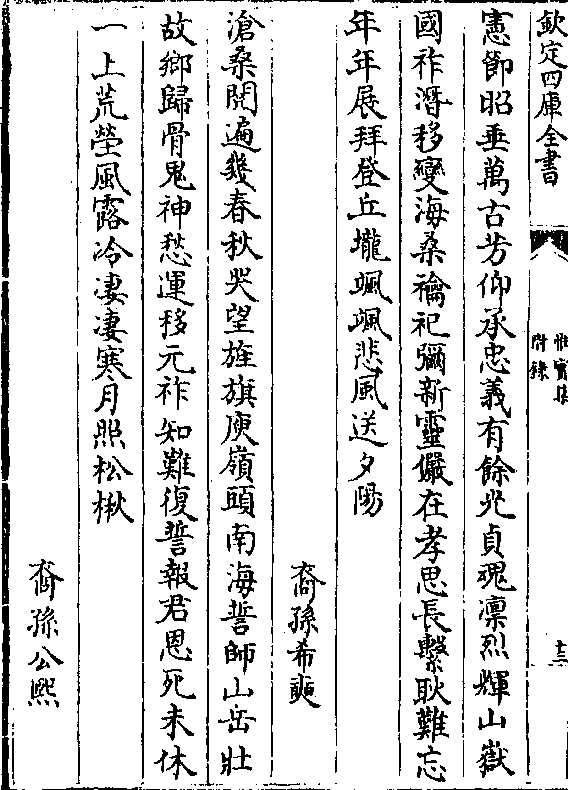 欽定四庫全書
惟實集
附錄
十三
憲節昭垂萬古芳仰承忠義有餘光貞魂凛烈輝山嶽
國祚潛移變海桑禴祀彌新靈儼在孝思長繫耿難忘
年年展拜登丘壠颯颯悲風送夕陽
裔孫希奭
滄桑閱遍幾春秋哭望旌旗庾嶺頭南海誓師山岳壯
故鄉歸骨鬼神愁運移元祚知難復誓報君恩死未休
一上荒塋風露冷凄凄寒月照松楸
裔孫公熙